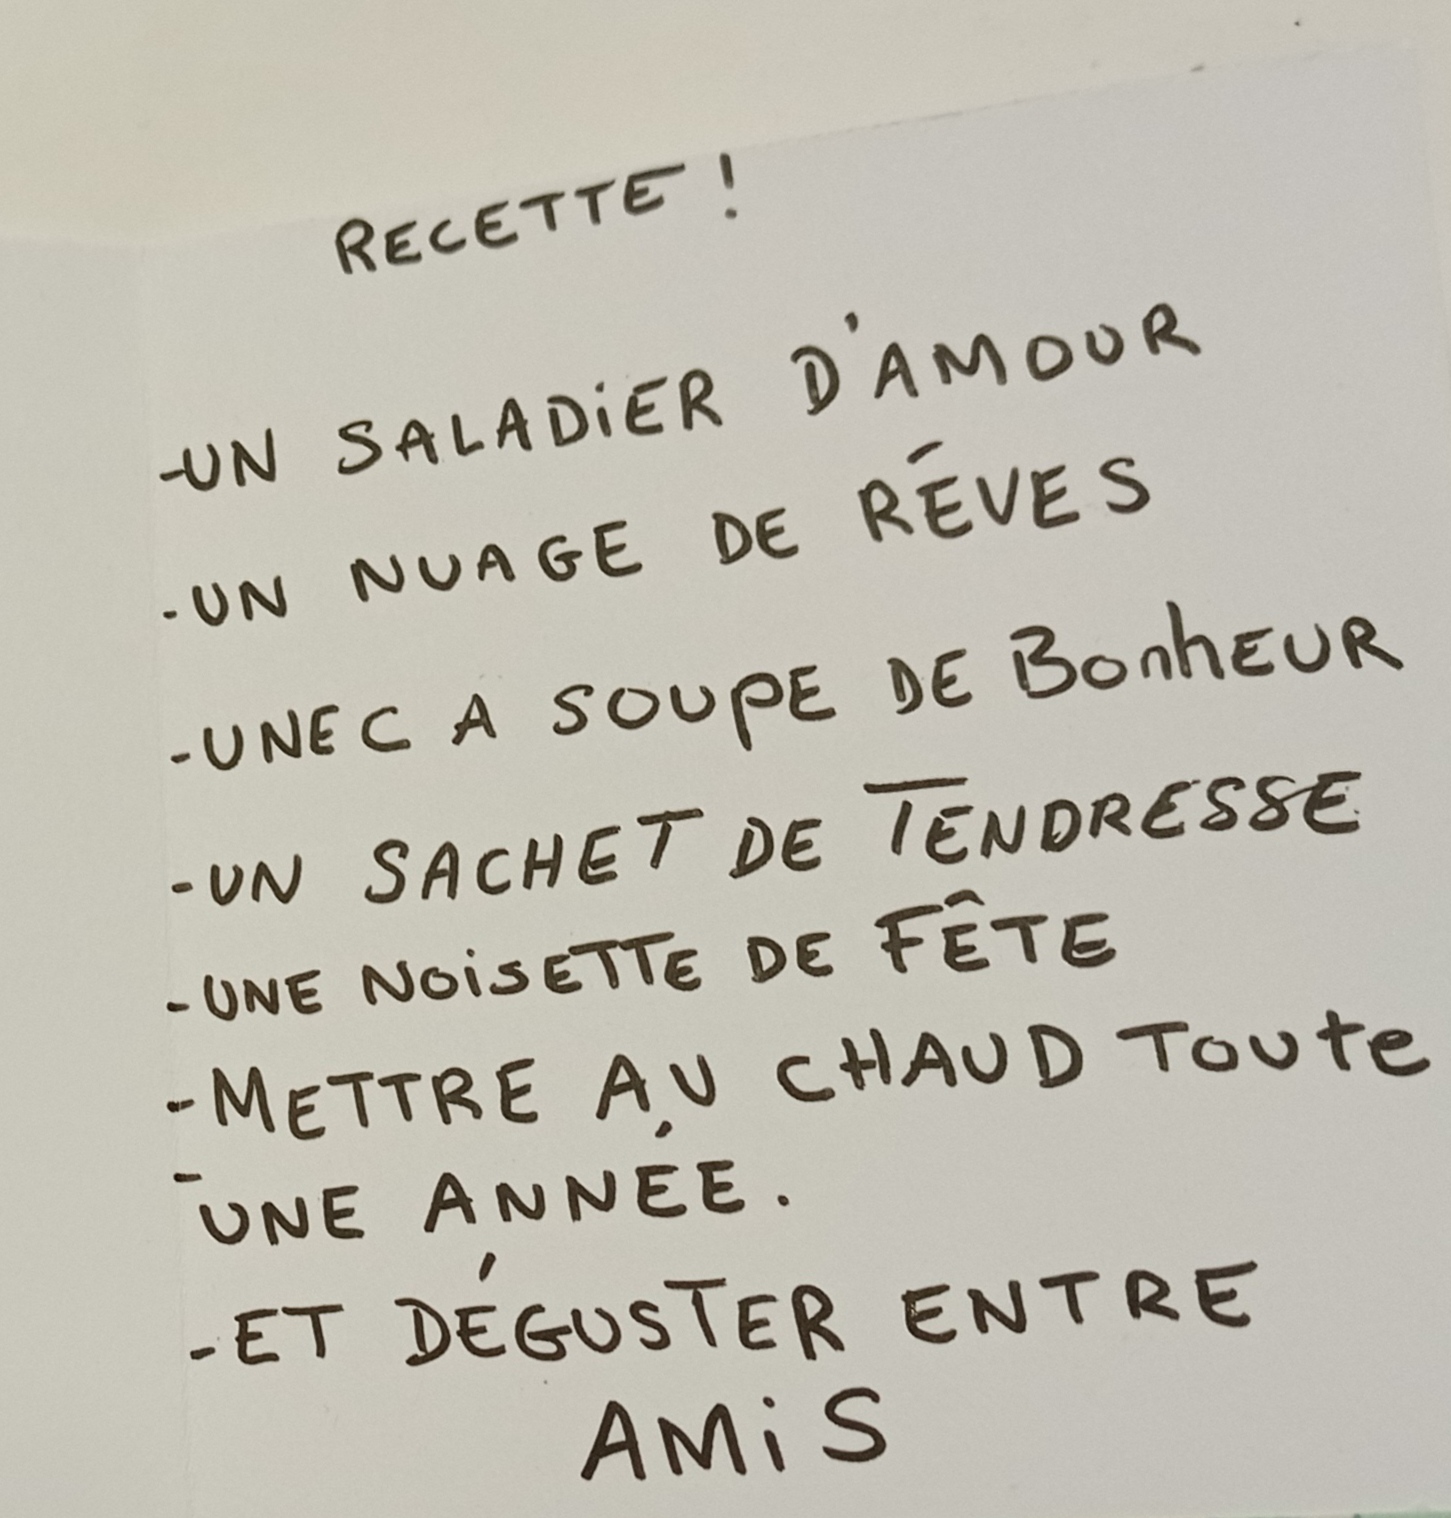 RECETTE !
-UN SALADiER D'AMOUR
-UN NUAGE DE RÉVES
-UNEC A SOUPE DE BonhEUR
-UN SACHET DE TENDRESSE
-UNE NOiSETTE DE FÊTE
-METTRE AU CHAUD TOUte
-UNE ANNÉE.
-ET DÉGUSTER ENTRE
AMiS